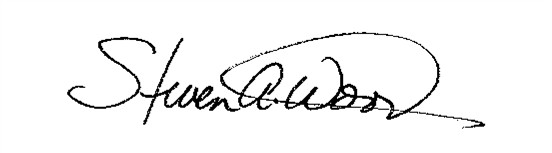 Steven A. Wood